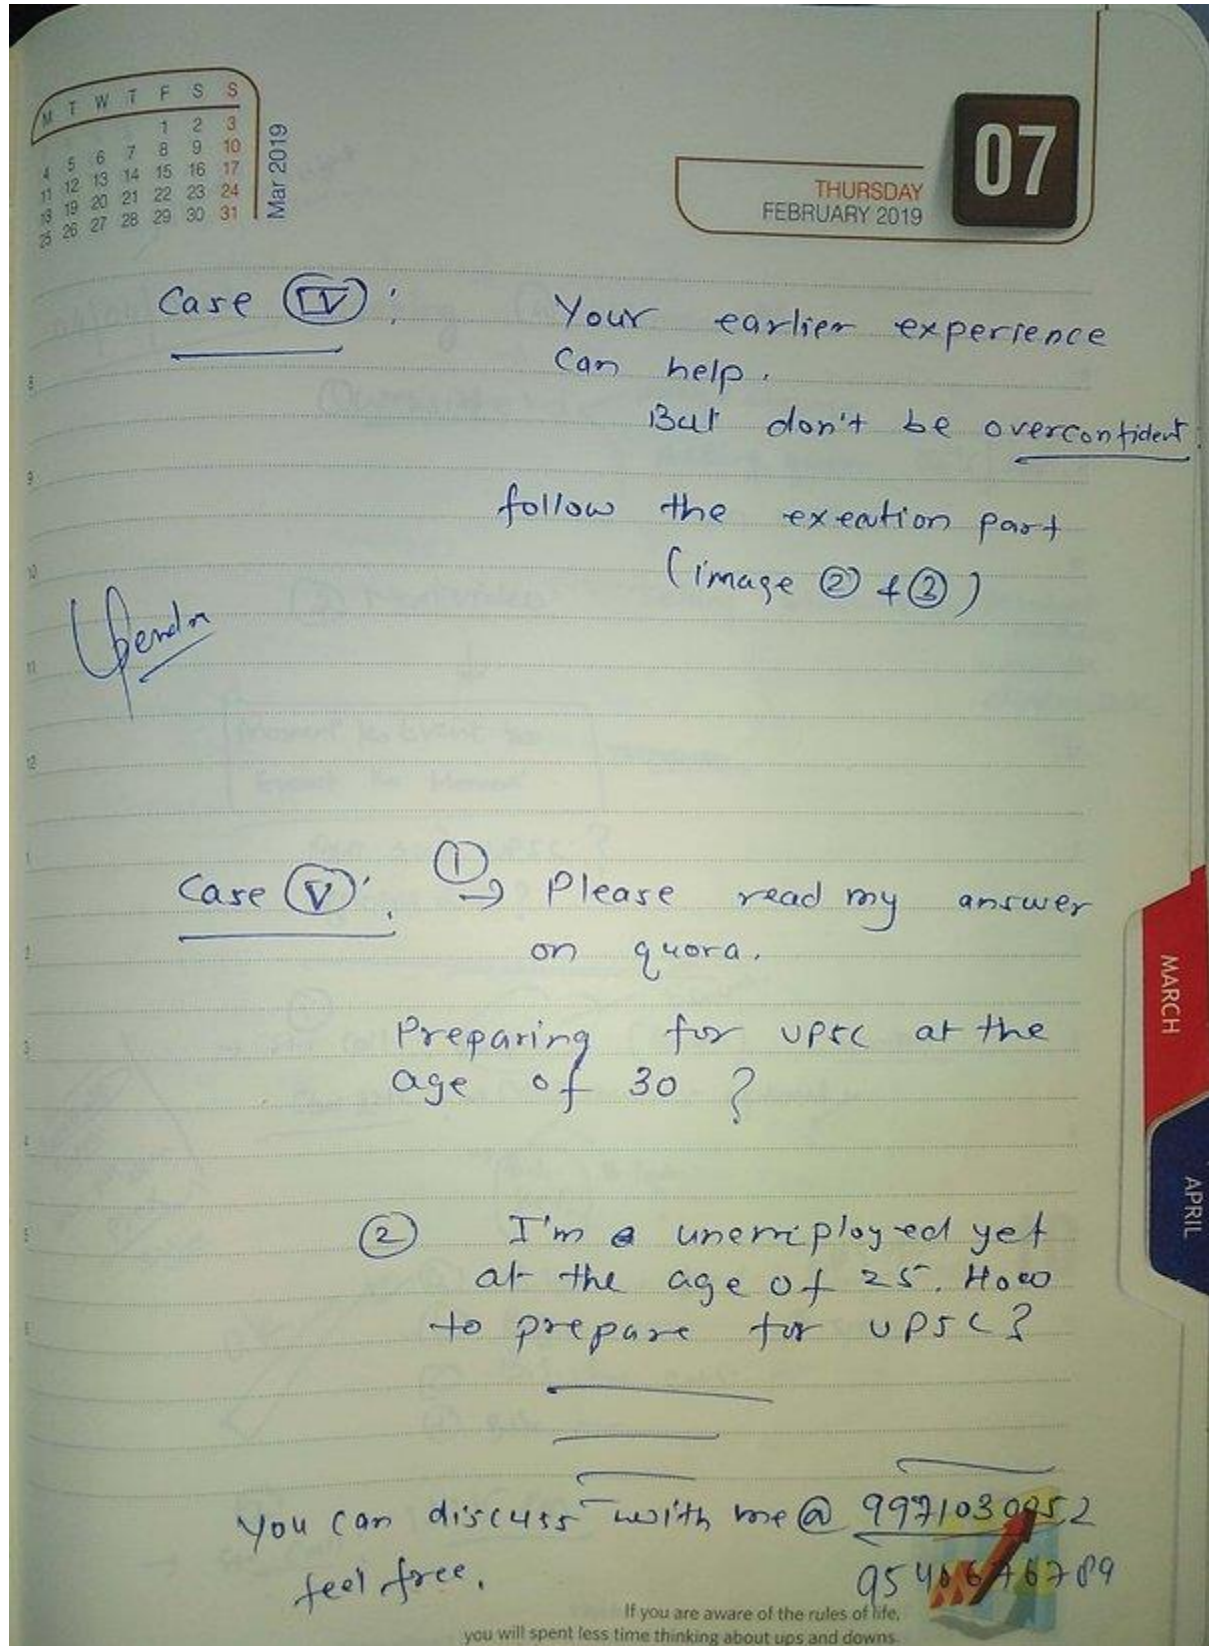 M T W T F S S
1 2 3
4 5 6 7 8 9 10
11 12 13 14 15 16 17
18 19 20 21 22 23 24
25 26 27 28 29 30 31
Mar 2019
07
THURSDAY
FEBRUARY 2019
Case IV :
Your earlier experience
Can help.
But don't be overconfident.
follow the execution part
(image 2 & 3)
Upendra
Case V : 1 → Please read my answer
on quora.
Preparing for UPSC at the
age of 30 ?
2 I'm a unemployed yet
at the age of 25. How
to prepare for UPSC?
You can discuss with me @ 9971030952
feel free.
If you are aware of the rules of life,
you will spent less time thinking about ups and downs.
MARCH
APRIL